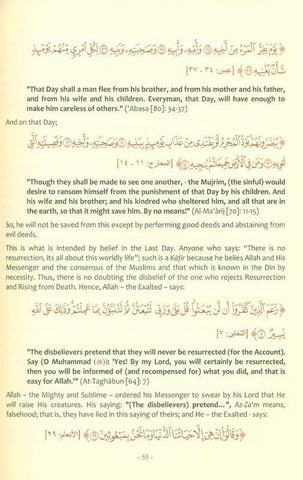 ﴿ يَوْمَ يَفِرُّ الْمَرْءُ مِنْ أَخِيهِ ۝ وَأُمِّهِ وَأَبِيهِ ۝ وَصَاحِبَتِهِ وَبَنِيهِ ۝ لِكُلِّ امْرِئٍ مِنْهُمْ يَوْمَئِذٍ
شَأْنٌ يُغْنِيهِ ﴾ [عبس: ٣٤ - ٣٧]
"That Day shall a man flee from his brother, and from his mother and his father,
and from his wife and his children. Everyman, that Day, will have enough to
make him careless of others." ('Abasa [80]: 34-37)
And on that Day;
﴿ يُبَصَّرُونَهُمْ يَوَدُّ الْمُجْرِمُ لَوْ يَفْتَدِي مِنْ عَذَابِ يَوْمِئِذٍ بِبَنِيهِ ۝ وَصَاحِبَتِهِ وَأَخِيهِ ۝ وَفَصِيلَتِهِ الَّتِي
تُؤْوِيهِ ۝ وَمَنْ فِي الْأَرْضِ جَمِيعًا ثُمَّ يُنْجِيهِ ﴾ [المعارج: ١١ - ١٤]
"Though they shall be made to see one another, - the Mujrim, (the sinful) would
desire to ransom himself from the punishment of that Day by his children. And
his wife and his brother; and his kindred who sheltered him, and all that are in
the earth, so that it might save him. By no means!" (Al-Ma'ārij [70]: 11-15)
So, he will not be saved from this except by performing good deeds and abstaining from
evil deeds.
This is what is intended by belief in the Last Day. Anyone who says: "There is no
resurrection, its all about this worldly life"; such is a Kāfir because he belies Allah and His
Messenger and the consensus of the Muslims and that which is known in the Din by
necessity. Thus, there is no doubting the disbelief of the one who rejects Resurrection
and Rising from Death. Hence, Allah – the Exalted – says:
﴿ زَعَمَ الَّذِينَ كَفَرُوا أَنْ لَنْ يُبْعَثُوا قُلْ بَلَى وَرَبِّي لَتُبْعَثُنَّ ثُمَّ لَتُنَبَّؤُنَّ بِمَا عَمِلْتُمْ وَذَلِكَ عَلَى اللَّهِ
يَسِيرٌ ﴾ [التغابن: ٧]
"The disbelievers pretend that they will never be resurrected (for the Account).
Say (O Muhammad (ﷺ): 'Yes! By my Lord, you will certainly be resurrected,
then you will be informed of (and recompensed for) what you did, and that is
easy for Allah.'" (At-Taghābun [64]: 7)
Allah – the Mighty and Sublime – ordered his Messenger to swear by his Lord that He
will raise His creatures. His saying: "(The disbelievers) pretend...", Az-Za'm means,
falsehood; that is, they have lied in this saying of theirs; and He – the Exalted - says:
﴿ وَقَالُوا إِنْ هِيَ إِلَّا حَيَاتُنَا الدُّنْيَا وَمَا نَحْنُ بِمَبْعُوثِينَ ﴾ [الأنعام: ٢٩]
- 55 -